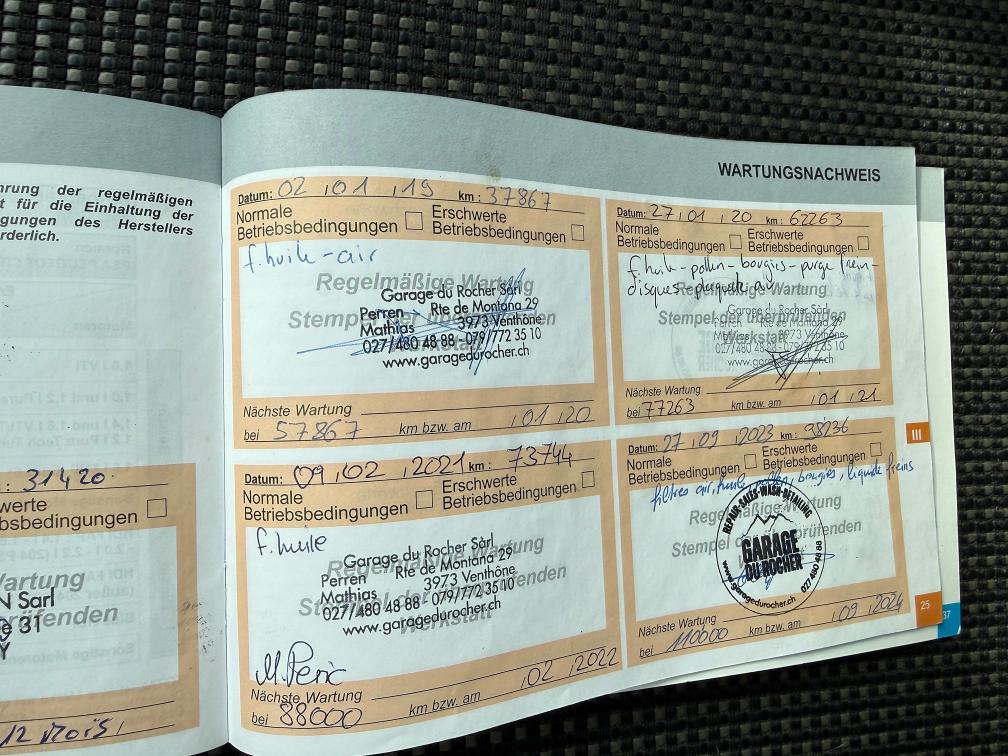 hrung der regelmäßigen
t für die Einhaltung der
gungen des Herstellers
rderlich.
: 31420
werte
bsbedingungen
artung
N Sarl
prüfenden
e 31
Y
12 Mois
WARTUNGSNACHWEIS
Datum: 02 01 19 km: 37867
Normale Betriebsbedingungen
Erschwerte Betriebsbedingungen
f. huile - air
Regelmäßige Wartung
Garage du Rocher Sàrl
Stempel der überprüfenden
Perren Rte de Montana 29
Mathias 3973 Venthône
027/480 48 88 - 079/772 35 10
www.garagedurocher.ch
Nächste Wartung
bei 57867 km bzw. am 01 20
Datum: 27 01 20 km: 62263
Normale Betriebsbedingungen
Erschwerte Betriebsbedingungen
f. huile - pollen - bougies - purge frein -
disques - plaquette av
Regelmäßige Wartung
Garage du Rocher Sàrl
Stempel der überprüfenden
Perren Rte de Montana 29
Werkstatt
3973 Venthône
027/480 48 88 - 079/772 35 10
www.garagedurocher.ch
Nächste Wartung
bei 77263 km bzw. am 01 21
Datum: 09 02 2021 km: 73744
Normale Betriebsbedingungen
Erschwerte Betriebsbedingungen
f. huile
Regelmäßige Wartung
Garage du Rocher Sàrl
Stempel der überprüfenden
Perren Rte de Montana 29
Mathias 3973 Venthône
027/480 48 88 - 079/772 35 10
Werkstatt
www.garagedurocher.ch
Nächste Wartung
bei 88000 km bzw. am 02 2022
Datum: 27 09 2023 km: 98236
Normale Betriebsbedingungen
Erschwerte Betriebsbedingungen
filtres air, huile, bougies, liquide freins
Regelmäßige Wartung
Stempel der überprüfenden
REPAIR-SALEX-WASH-DETAILING
GARAGE
DU ROCHER
www.garagedurocher.ch 027 480 48 88
Nächste Wartung
bei 110600 km bzw. am 09 2024
III
25
37